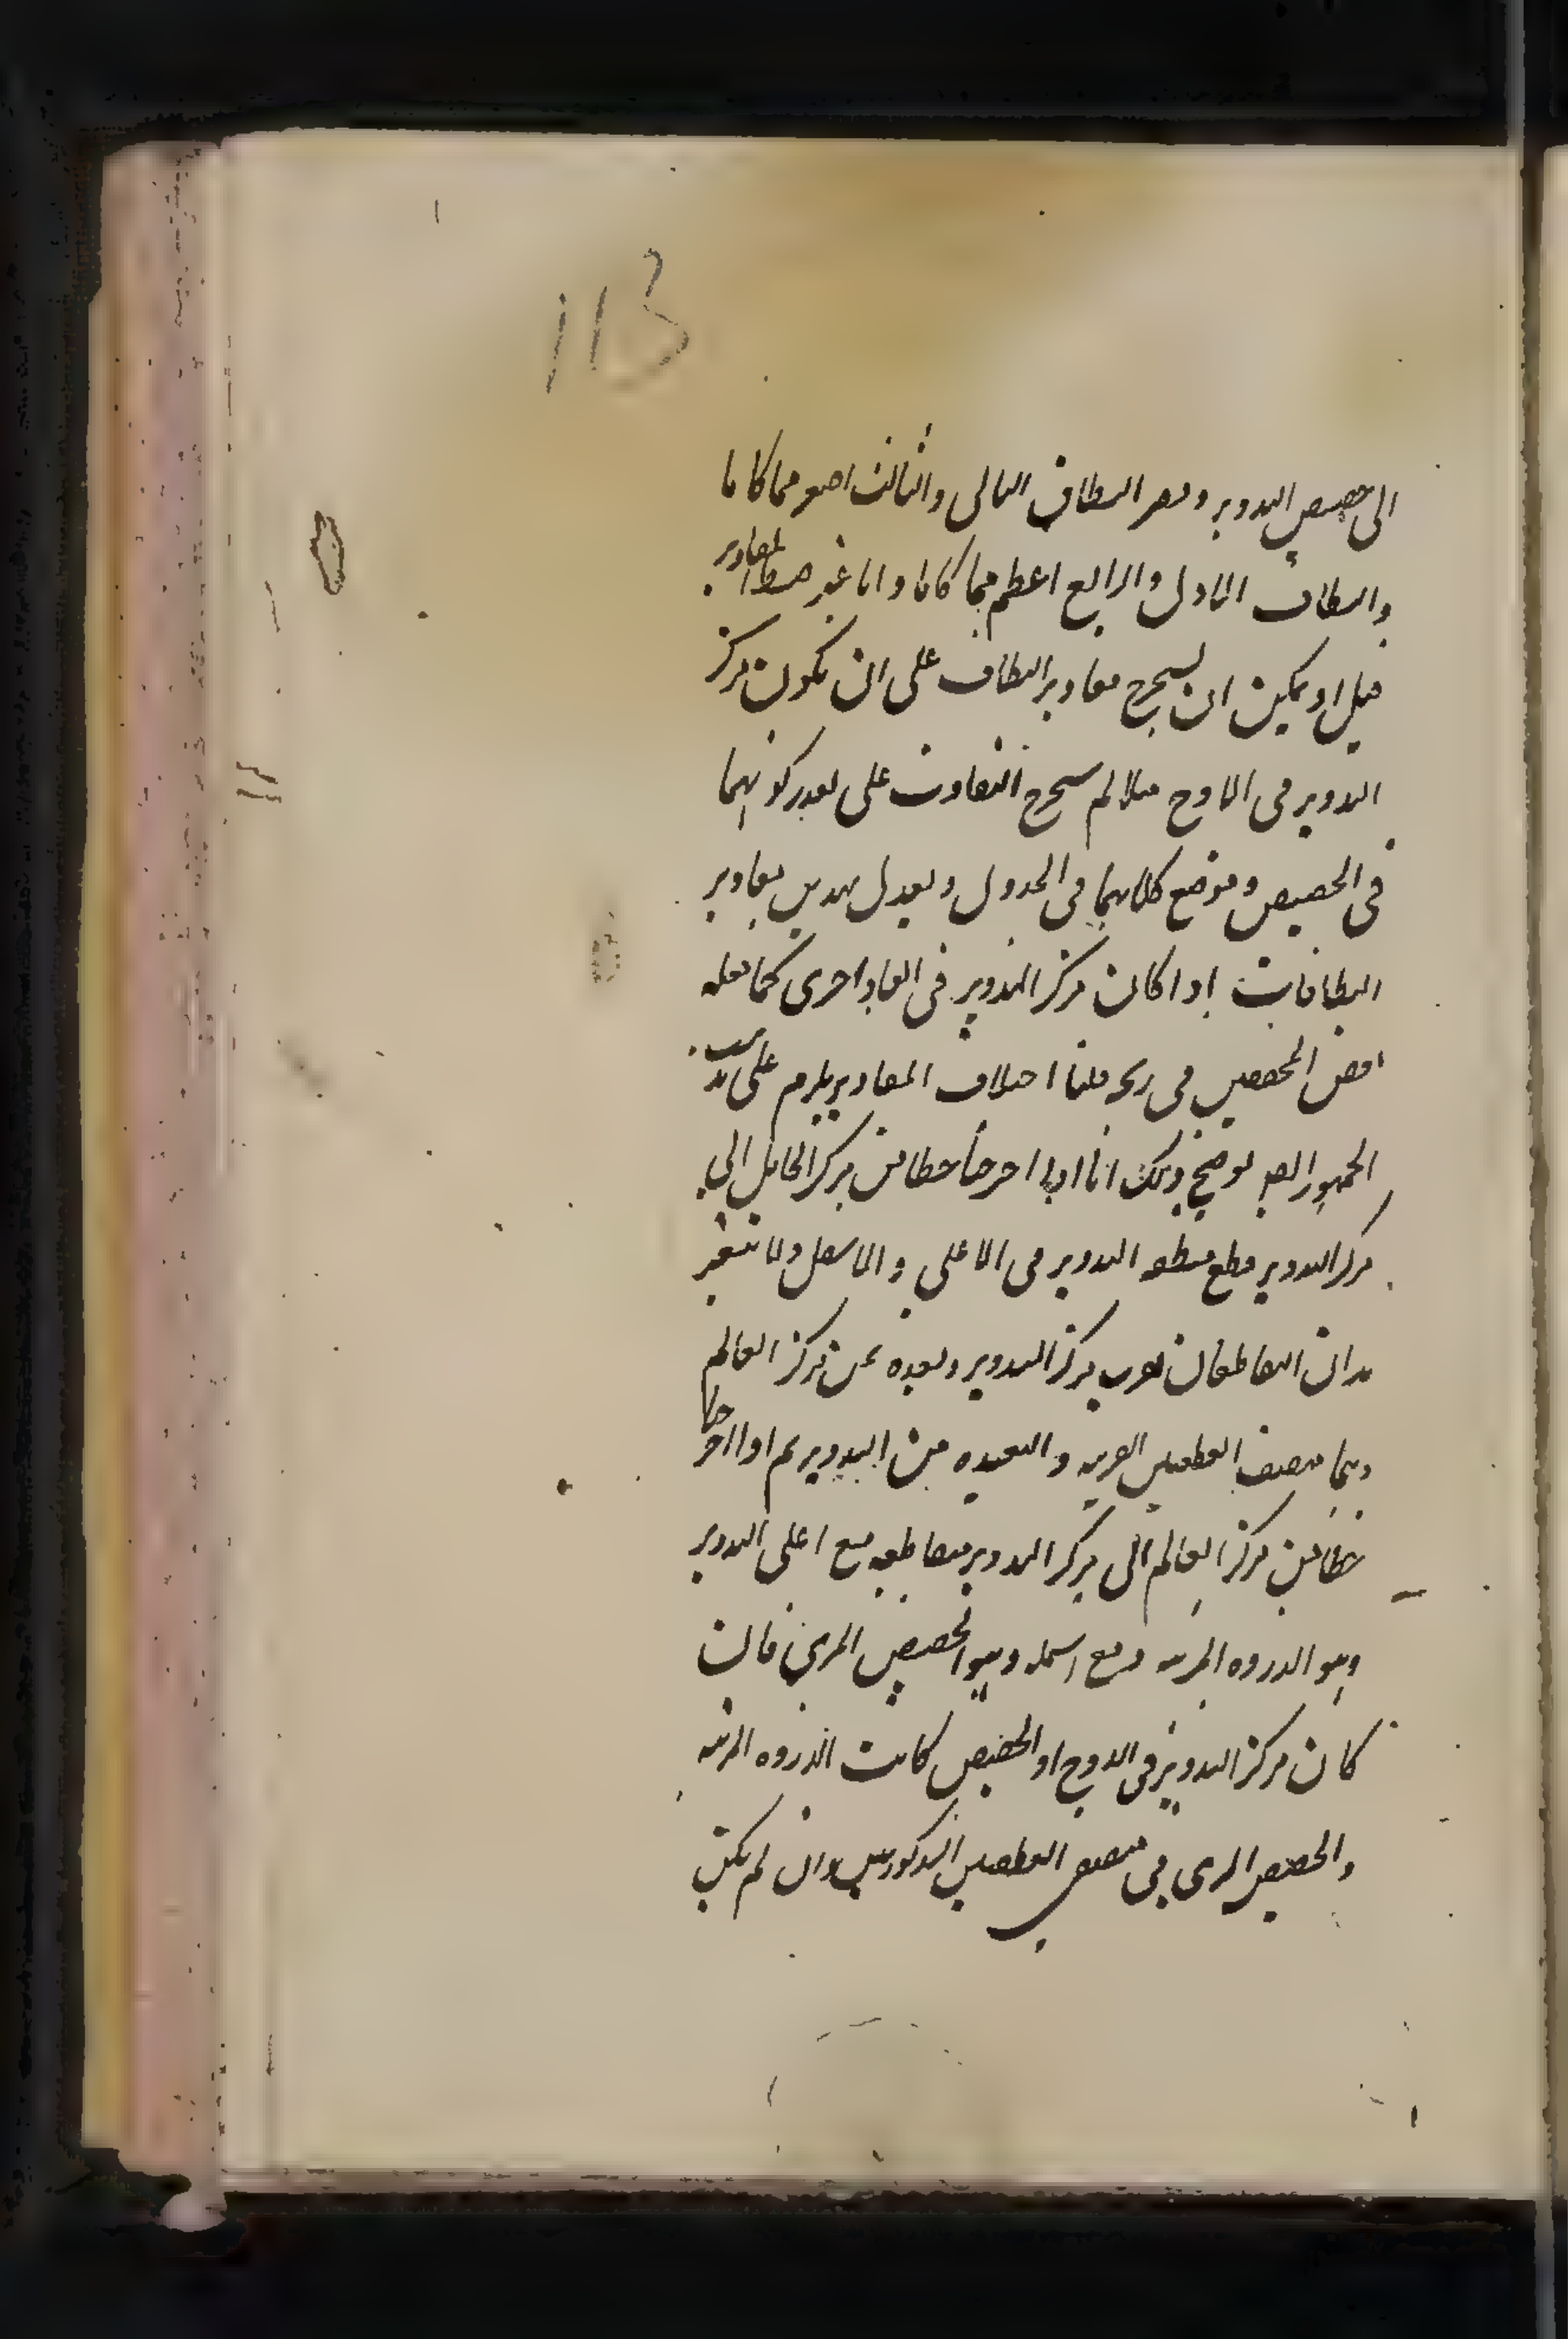 113
الى حضيض التدوير وتصير النطاق الثانى والثالث اصغر مما كانا
والنطاق الاول والرابع اعظم مما كانا واما غير المقادير
قيل او يمكن ان يستخرج مقادير النطاق على ان يكون مركز
التدوير فى الاوج مثلا ثم يستخرج التفاوت على تقدير كونهما
فى الحضيض وتوضع كلاهما فى الجدول وتعدل بهذين مقادير
النطاقات اذا كان مركز التدوير فى ابعاد اخرى كما فعله
بعض المحققين فى زيجه قلنا اختلاف المقادير يلزم على مذهب
الجمهور ايضا توضيح ذلك انا اذا اخرجنا خطا من مركز الحامل الى
مركز التدوير قطع منطقة التدوير فى الاعلى والاسفل ولا يتغير
هذان التقاطعان بقرب مركز التدوير وبعده عن مركز العالم
وهما منتصف القطعتين القريبة والبعيدة من التدوير ثم اذا اخرجنا
خطا من مركز العالم الى مركز التدوير فتقاطعه مع اعلى التدوير
وهو الذروة المرئية ومع اسفله وهو الحضيض المرئى فان
كان مركز التدوير فى الاوج او الحضيض كانت الذروة المرئية
والحضيض المرئى فى منتصفى القطعتين المذكورتين وان لم يكن